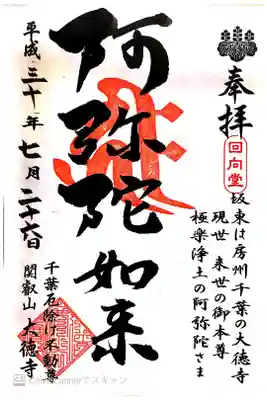 奉拝
回向堂
坂東は房州千葉の大徳寺
現世 来世の御本尊
極楽浄土の阿弥陀さま
阿弥陀如来
千葉厄除け不動尊
関叡山 大徳寺
平成三十年七月二十六日
CamScannerでスキャン